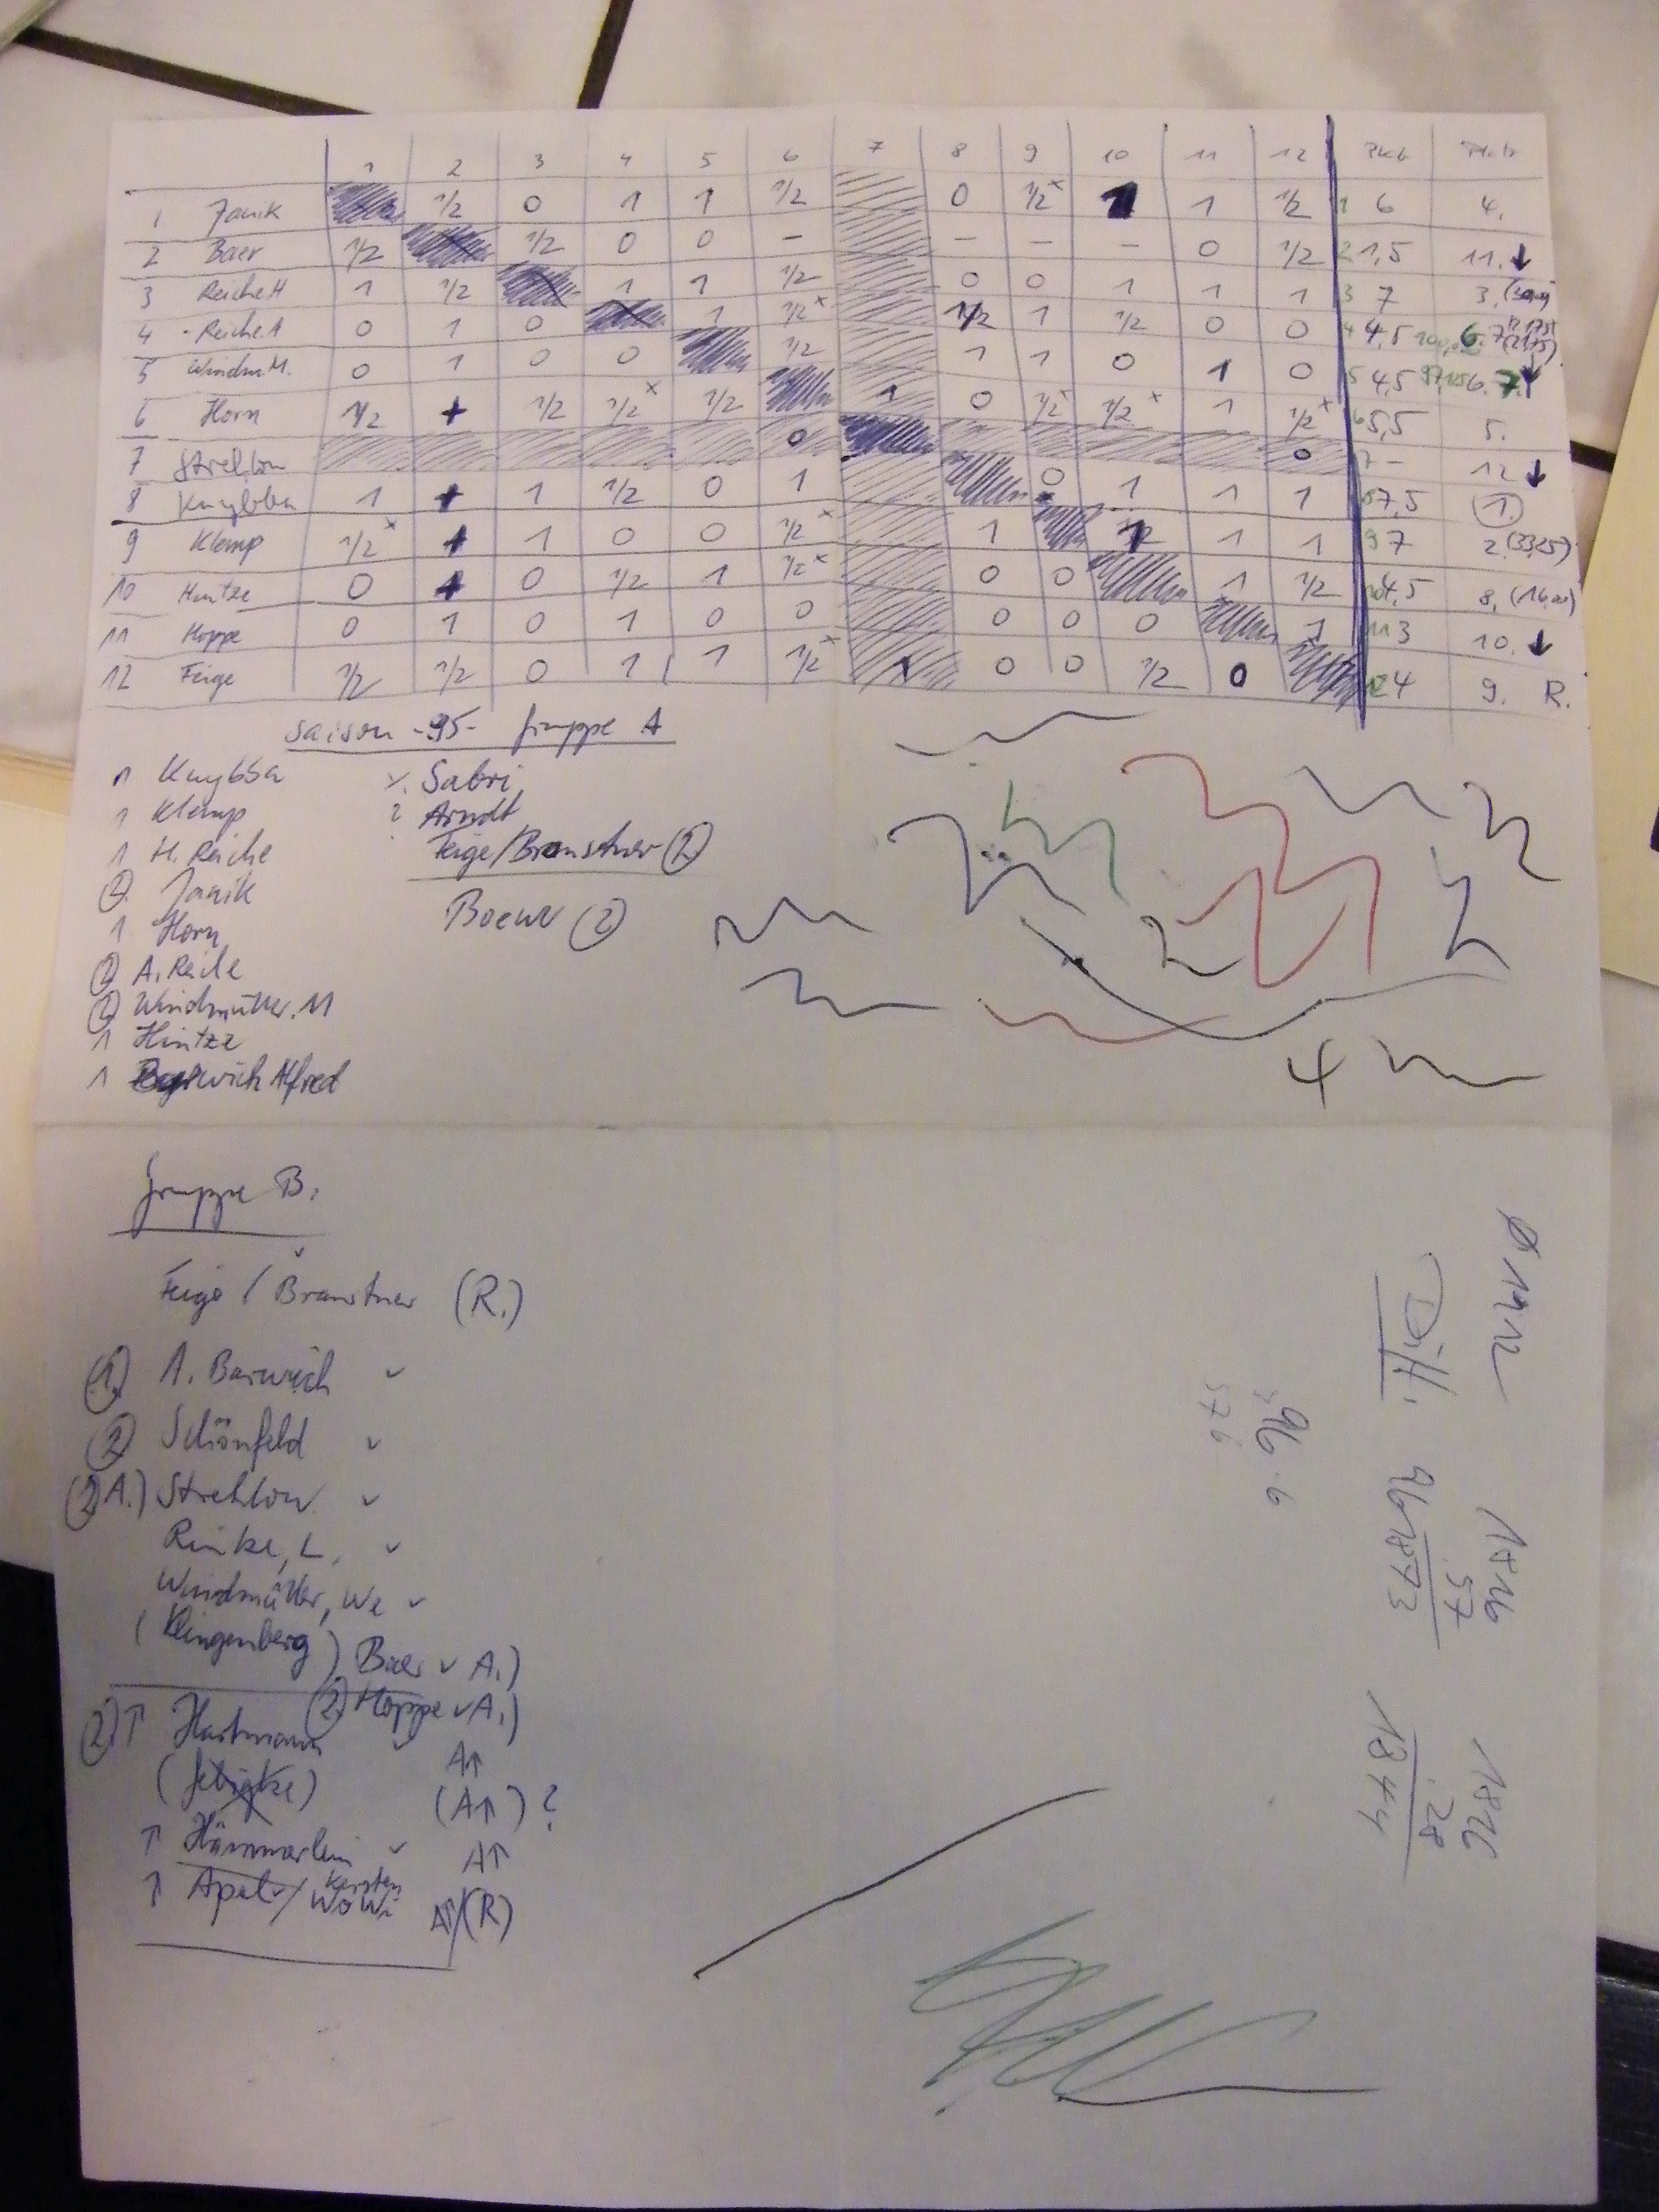 1 2 3 4 5 6 7 8 9 10 11 12 Pkt Platz
1 Janik 1/2 0 1 1 1/2 0 1/2x 1 1 1/2 1 6 4.
2 Baer 1/2 1/2 0 0 - - - - 0 1/2 2 1,5 11. ↓
3 Reiche H 1 1/2 1 1 1/2 0 0 1 1 1 3 7 3.
4 Reiche A 0 1 0 1 1/2x 1/2 1 1/2 0 0 4 4,5 6.
5 Windm. M. 0 1 0 0 1/2 1 1 0 1 0 5 4,5 7.
6 Horn 1/2 + 1/2 1/2x 1/2 1 0 1/2x 1/2x 1 1/2x 6 5,5 5.
7 Strehlow 0 0 7 - 12 ↓
8 Knybba 1 + 1 1/2 0 1 0 1 1 1 8 7,5 1.
9 Klemp 1/2x + 1 0 0 1/2x 1 1 1 9 7 2. (33,25)
10 Hintze 0 + 0 1/2 1 1/2x 0 0 1 1/2 10 4,5 8. (16,00)
11 Hoppe 0 1 0 1 0 0 0 0 0 1 11 3 10. ↓
12 Feige 1/2 1/2 0 1 1 1/2x 1 0 0 1/2 0 12 4 9. R.
Saison -95- Gruppe A
1 Knybba
1 Klemp
1 H. Reiche
2. Janik
1 Horn
2 A. Reiche
2 Windmüller. M
1 Hintze
1 Barwich Alfred
Sabri
? Arndt
Feige/Branstner 2
Boewr 2
4
Gruppe B:
Feige / Branstner (R.)
1. A. Barwich ✓
2 Schönfeld ✓
2 A.) Strehlow ✓
Rinke, L. ✓
Windmüller, We ✓
(Klingenberg) Baer ✓ A.)
2. Hoppe ✓ A.)
2. ↑ Hartmann ✓ A↑
(A↑) ?
↑ Hämmerlein ✓ A↑
↑ Apel ✓/ Karsten WoWi A↑/(R)
Ø 1912
Diff. 96
96 · 6
576
1816
57
1873
1816
28
1844